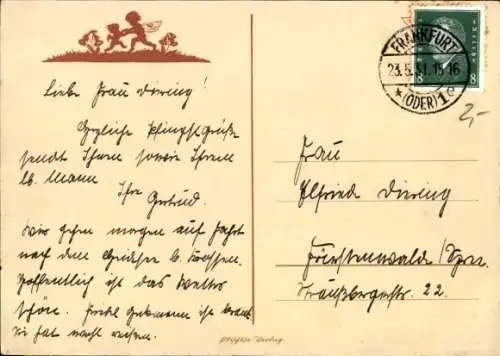 Liebe Frau Diering!
Herzliche Pfingstgrüße
sendet Ihnen sowie Ihrem
lb. Mann
Ihre
Gertrud.
Wir gehen morgen auf Fahrt
nach dem
Hoffentlich ist das Wetter
schön. ist krank
Sie hat
FRANKFURT
23.5.31. 15-16
* (ODER) 1e
8 8
2,-
Frau
Elfriede Diering
Fürstenwalde/Spree.
Straußbergerstr. 22.